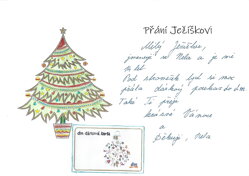 Přání Ježíškovi
Milý Ježíšku,
jmenuji se Nela a je mi
let.
Pod stromeček bych si moc
přála dárkový poukaz do dm
Také Ti přeji
krásné Vánoce
a
Děkuji, Nela
dm dárková karta